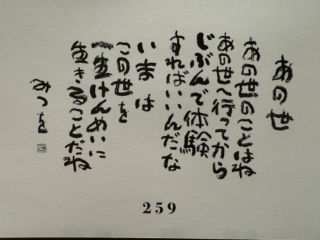 あの世
あの世のことはね
あの世へ行ってから
じぶんで体験
すればいいんだな
いまは
この世を
一生けんめいに
生きることだね
みつを
259